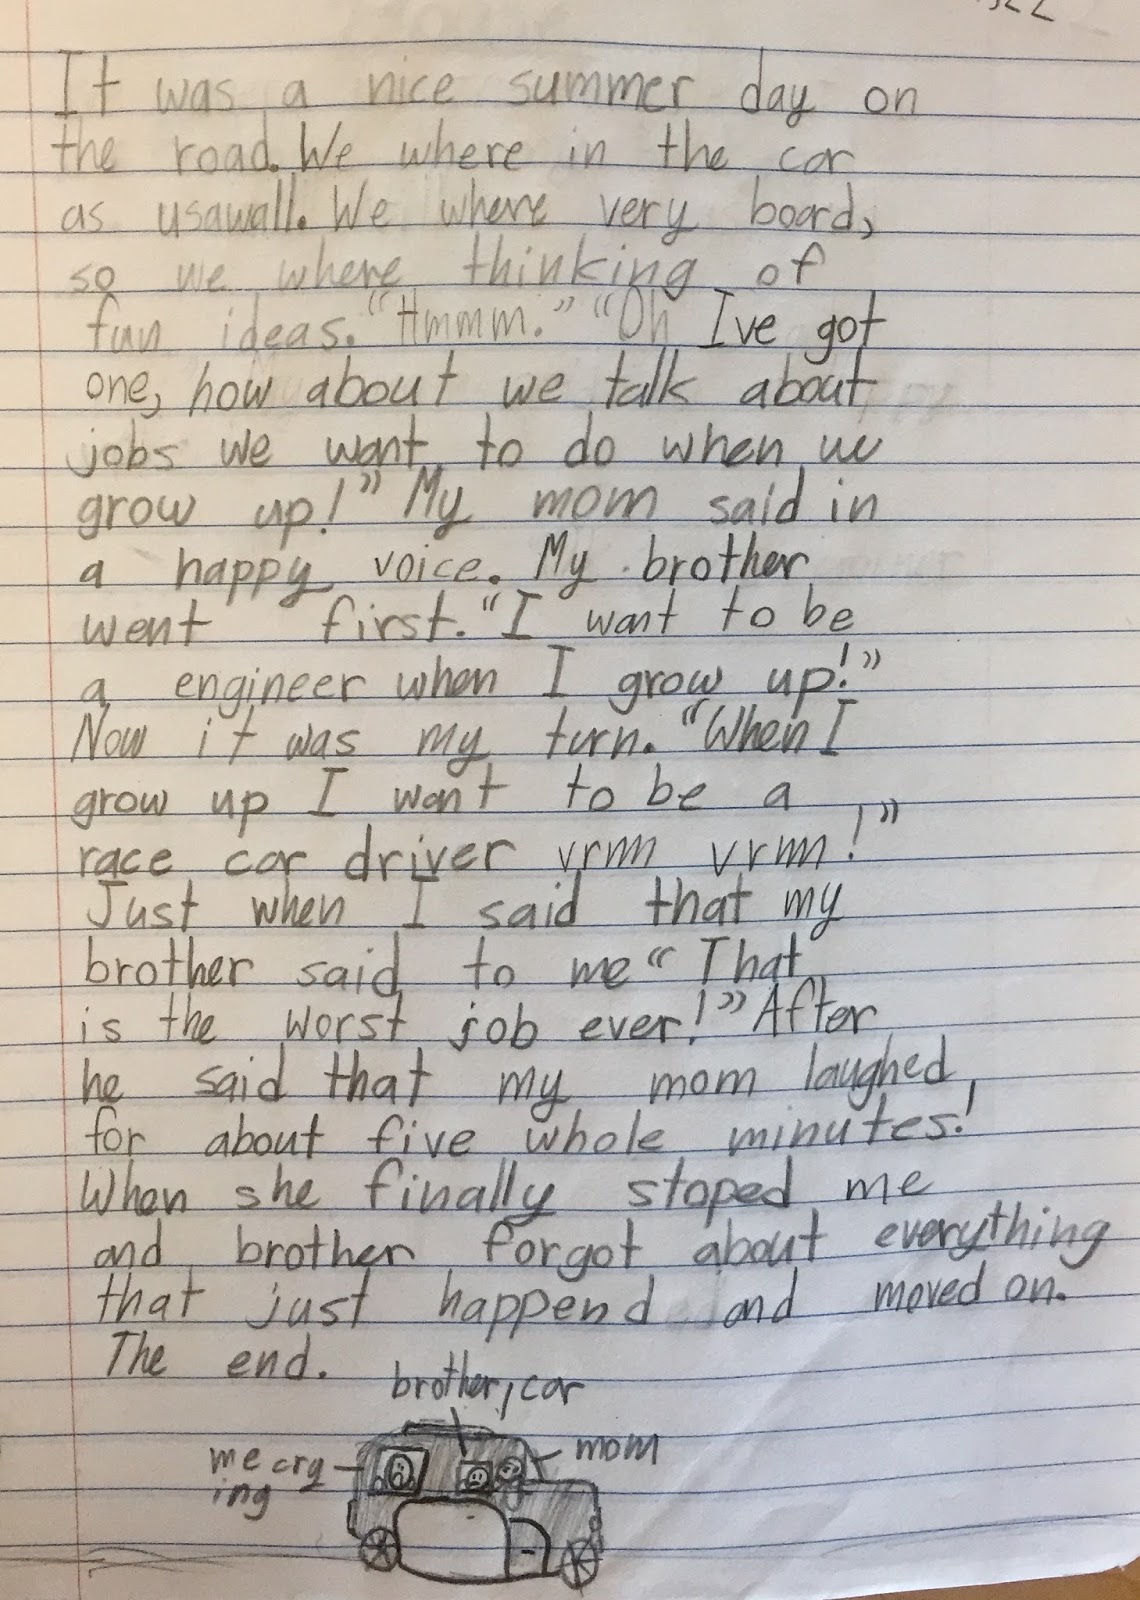 It was a nice summer day on
the road. We where in the car
as usawall. We where very board,
so we where thinking of
fun ideas. "Hmmm." "Oh Ive got
one, how about we talk about
jobs we want to do when we
grow up!" My mom said in
a happy voice. My brother
went first. "I want to be
a engineer when I grow up!"
Now it was my turn. "When I
grow up I want to be a
race car driver vrmm vrmm!"
Just when I said that my
brother said to me "That
is the worst job ever!" After
he said that my mom laughed
for about five whole minutes!
When she finally stoped me
and brother forgot about everything
that just happend and moved on.
The end.
brother, car
me cry
ing
mom